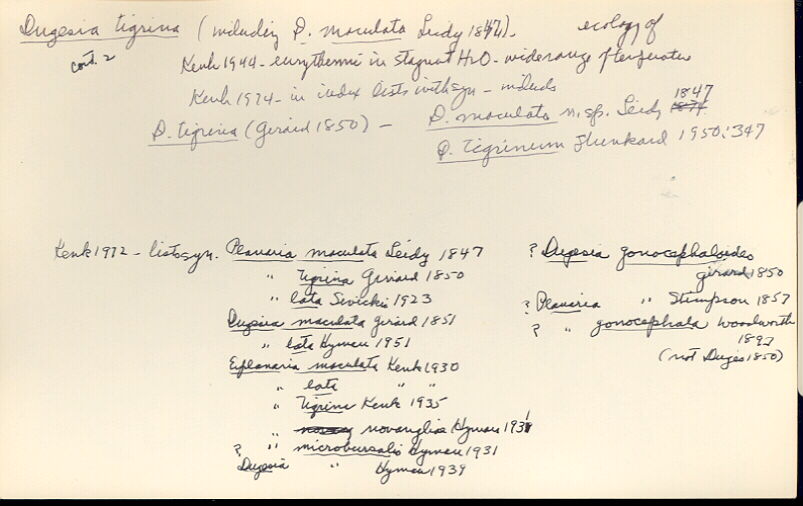 Dugesia tigrina (including D. maculata Leidy 1847)- ecology of
cont. 2
Kenk 1944 - eurythermic in stagnant H2O - wide range of temperature
Kenk 1974 - in index lists with syn - includes
D. tigrina (Girard 1850) - D. maculata n. sp. Leidy 1847
D. tigrinum Stunkard 1950:347
Kenk 1972 - lists syn. Planaria maculata Leidy 1847
" tigrina Girard 1850
" lata Sivickis 1923
Dugesia maculata Girard 1851
" lata Hyman 1951
Euplanaria maculata Kenk 1930
" lata " "
" tigrina Kenk 1935
" novangliae Hyman 1931
? " microbursalis Hyman 1931
Dugesia " Hyman 1939
? Dugesia gonocephaloides
Girard 1850
? Planaria " Stimpson 1857
? " gonocephala Woodworth
1897
(not Dugès 1850)